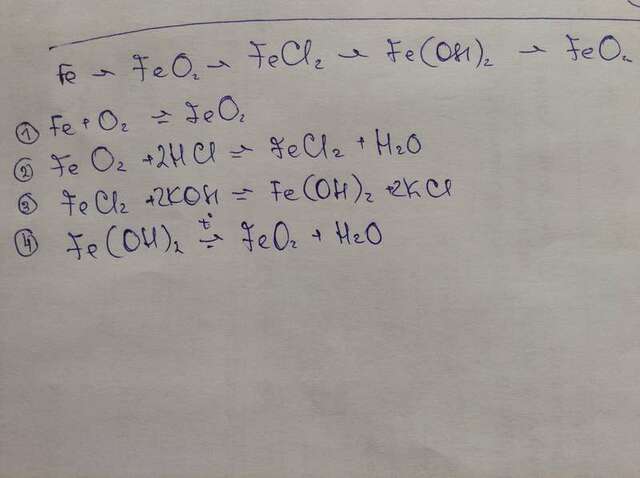 Fe → FeO₂ → FeCl₂ → Fe(OH)₂ → FeO₂
① Fe + O₂ = FeO₂
② FeO₂ + 2HCl = FeCl₂ + H₂O
③ FeCl₂ + 2KOH = Fe(OH)₂ + 2KCl
④ Fe(OH)₂ t°= FeO₂ + H₂O